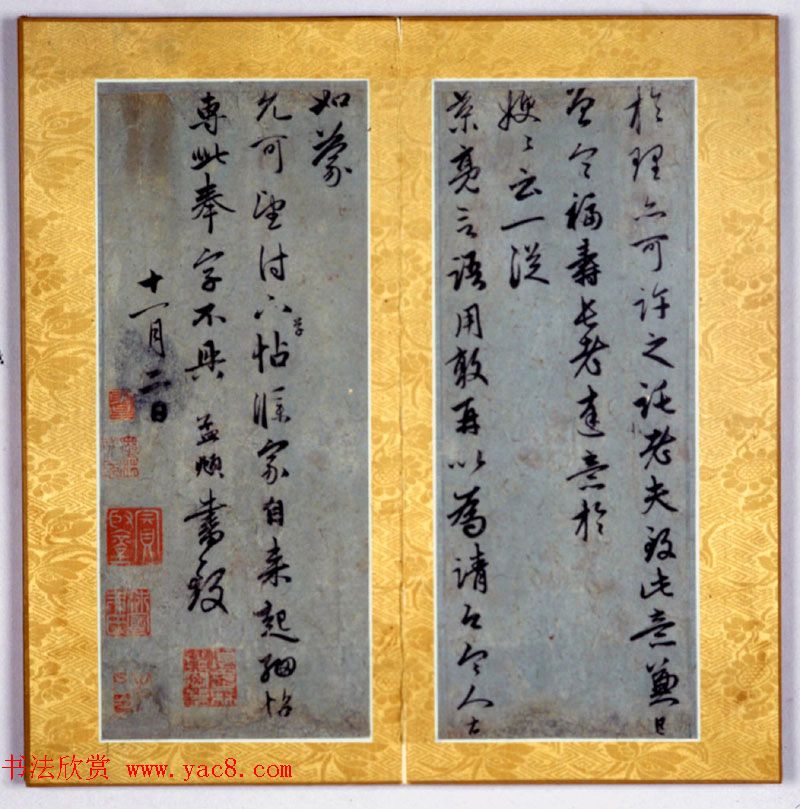 於理亦可許之託老夫致此意兼已
曾令福壽長老達意於
嫂〻云一從
葉亮言語用敢再以為請
如蒙
允可望付草帖家自来起細帖
専此奉字不具 孟頫書致
十一月二日
书法欣赏 www.yac8.com